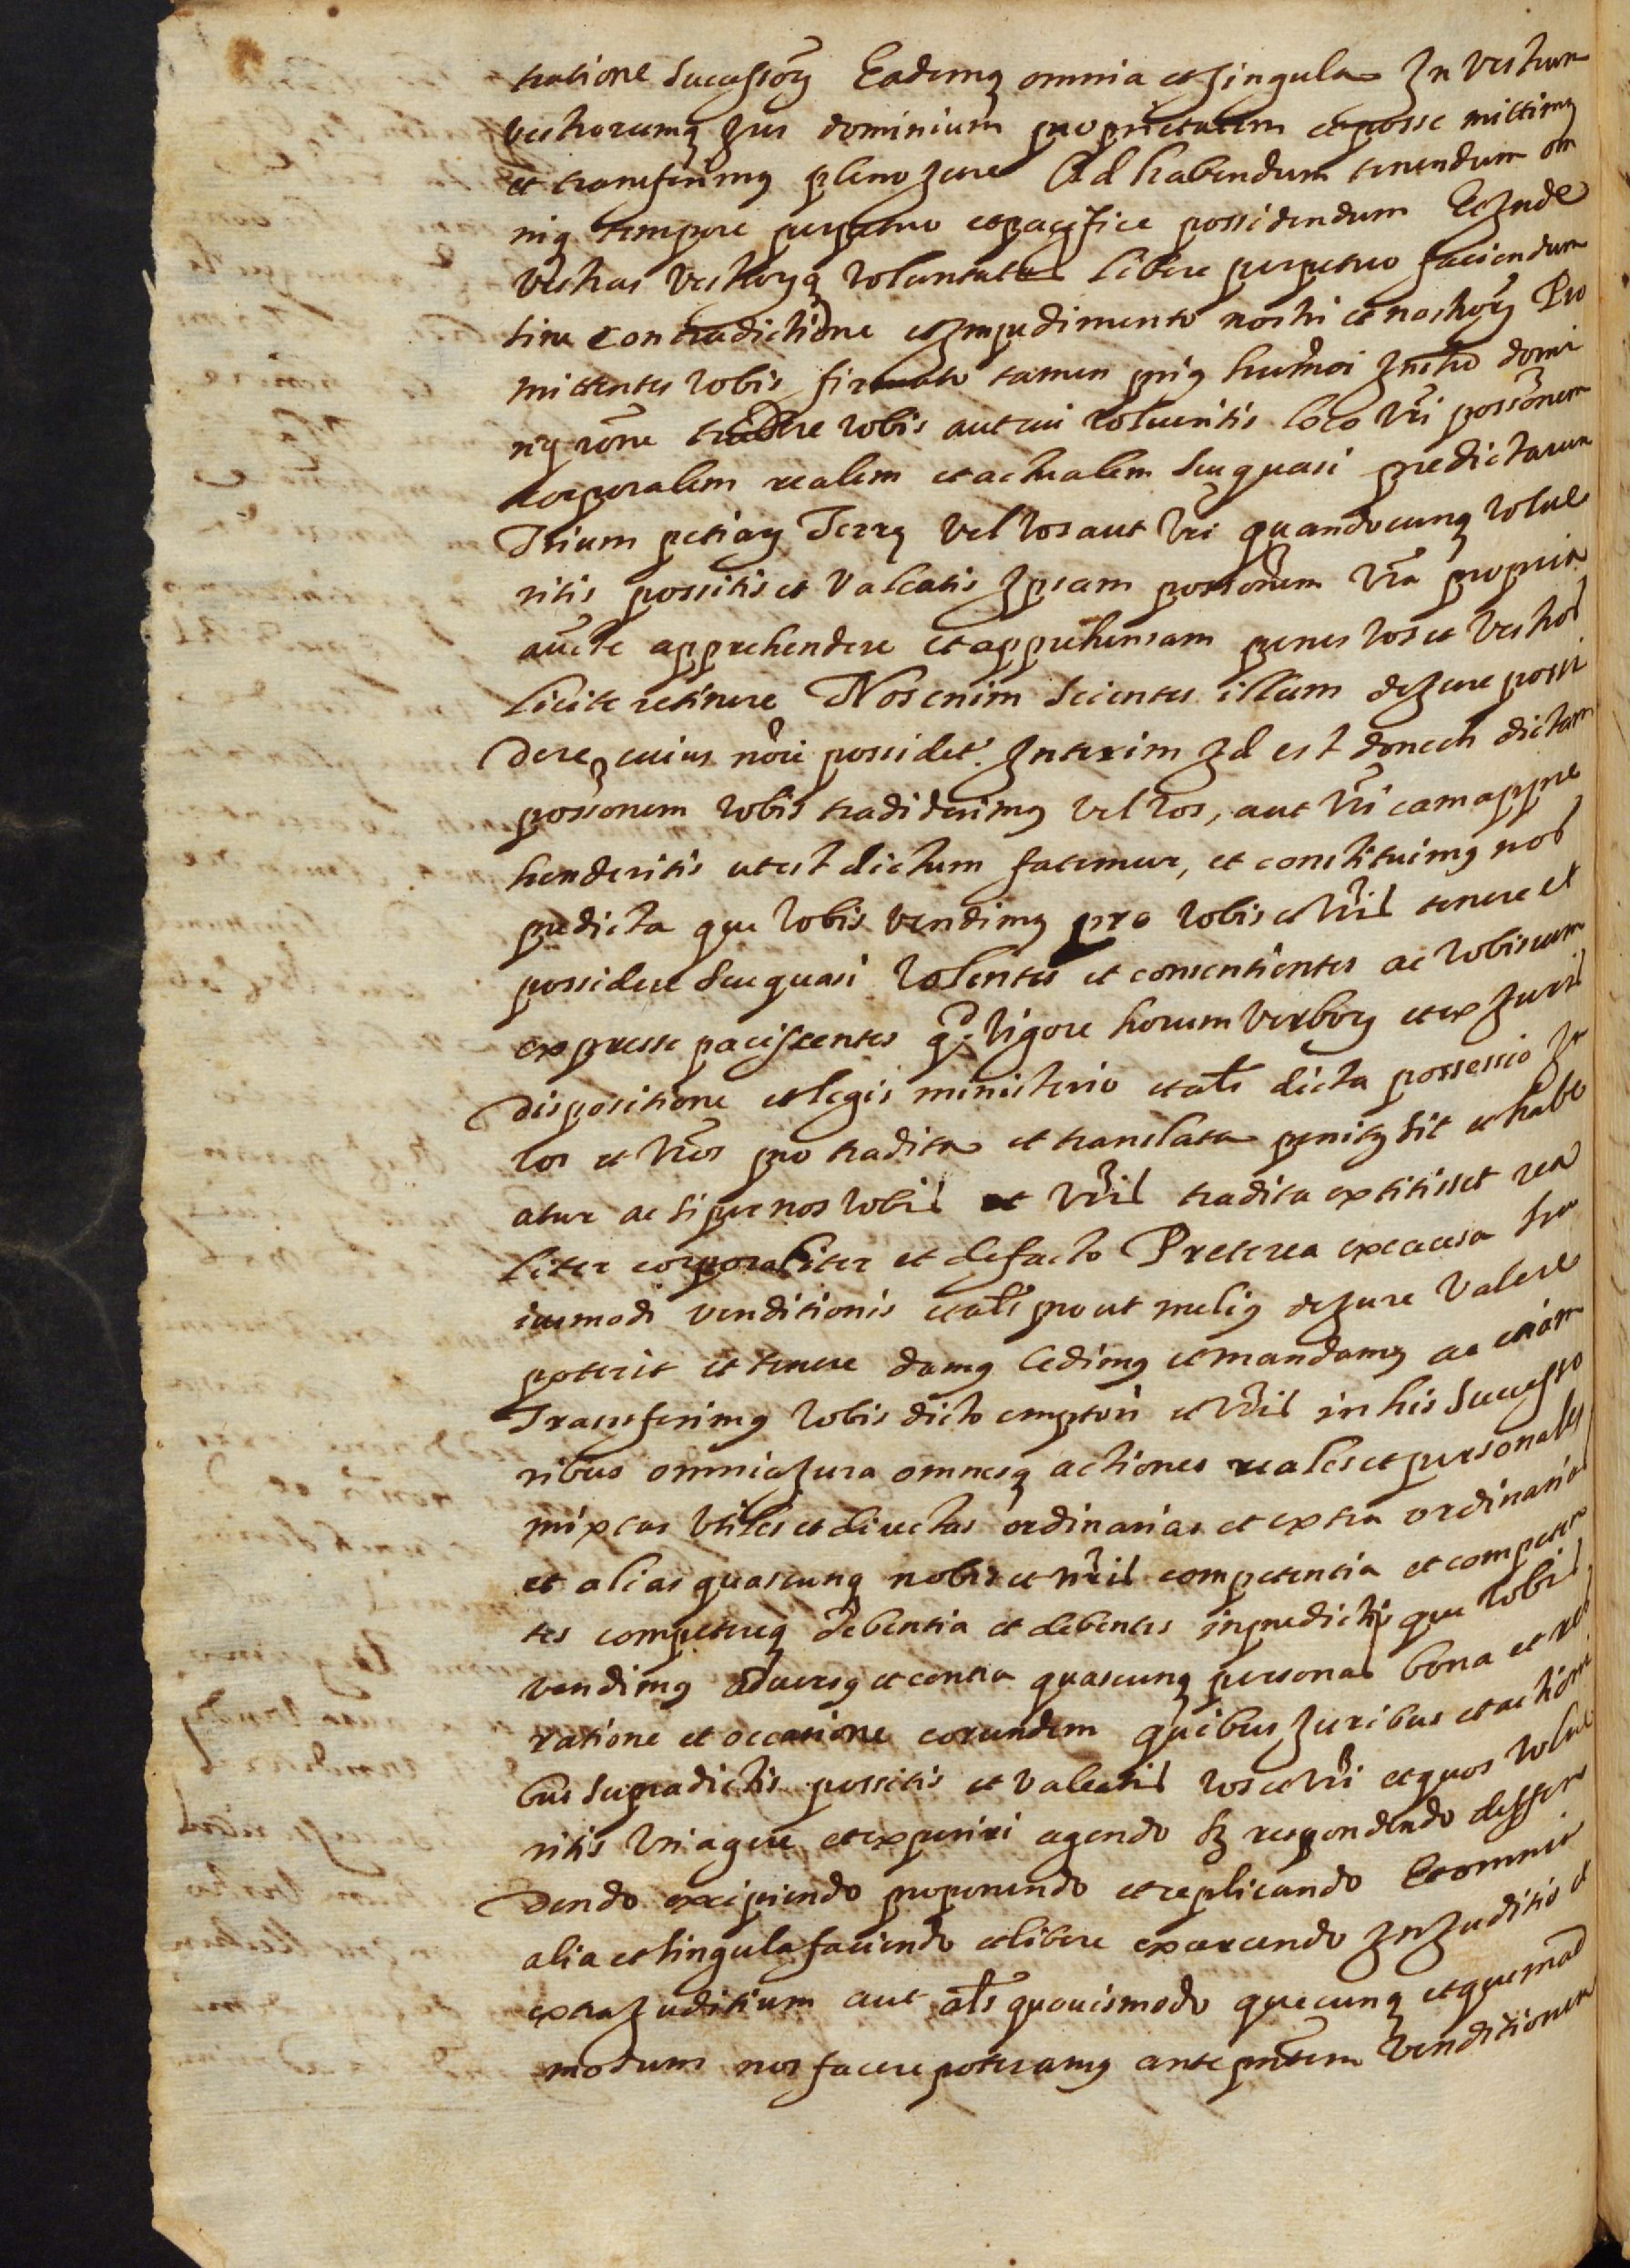 tratione Successorũ Eademq; omnia et singula In vestrum
vestrorumq; Jus dominium proprietatem et posse mittimus
et transferimus pleno Jure Ad habendum tenendum om
niq; tempore perpetuo et pacifice possidendum Et Inde
vestras vestrorũq; voluntates libere perpetuo faciendum
sine contradictione et Impedimento nostri et nostrorũ Pro
mittentes vobis firmato tamen prius hui9moi Instro domi
niq; rõne tradere vobis aut cui volueritis loco vri possõnem
corporalem realem et actualem seu quasi predictarum
Trium petiarũ Terre vel vos aut vri quandocunq; volue
ritis possitis et valeatis Ipsam possõnem vra propria
aucte apprehendere et apprehensam penes vos et vestros
licite retinere Nos enim scientes illum de Jure possi
dere, cuius nõie possidet. Interim Id est donech dictam
possõnem vobis tradiderimus vel vos, aut vri eam appre
henderitis ut est dictum fatemur, et constituimus nos
predicta que vobis vendimus pro vobis et vris tenere et
possidere seu quasi volentes et consentientes ac vobiscum
expresse paciscentes qd vigore horum verborũ et ex Juris
dispositione et legis ministerio et als dicta possessio In
vos et vros pro tradita et translata penitus sit et habe
atur ac si per nos vobis et vris tradita extitisset rea
liter corporaliter et de facto Preterea ex causa hu
iusmodi venditionis et als prout melius de Jure valere
poterit et tenere damus Cedimus et mandamus ac etiam
Transferimus vobis dicto emptori et vris in his Successo
ribus omnia Jura omnesq; actiones reales et personales
mixtas vtiles et directas ordinarias et extra ordinarias
et alias quascunq; nobis et nris competentia et competen
tes competereq; debentia et debentes in predictis que vobis
vendimus adversus et contra quascunq; personas bona et res
ratione et occasione eorundem quibus Juribus et actioni
bus supradictis possitis et valeatis vos et vri et quos volue
ritis vti agere et experiri agendo sz respondendo deffen
dendo excipiendo proponendo et replicando Et omnia
alia et singula faciendo et libere exercendo In Juditio et
extra Juditium aut als quouismodo quecunq; et quemad
modum nos facere poteramus ante pntem venditionem